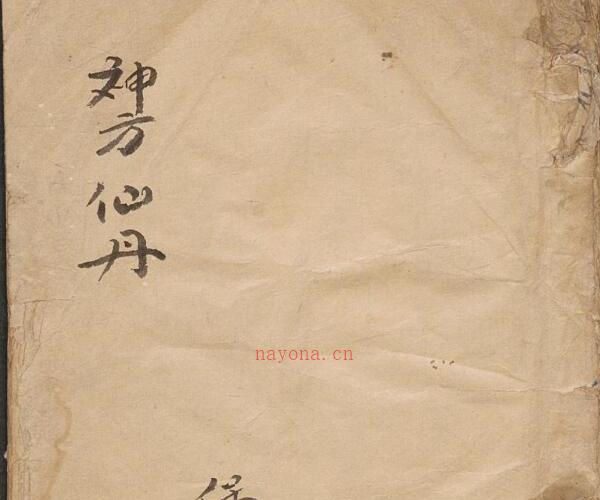 神方仙丹
nayona.cn